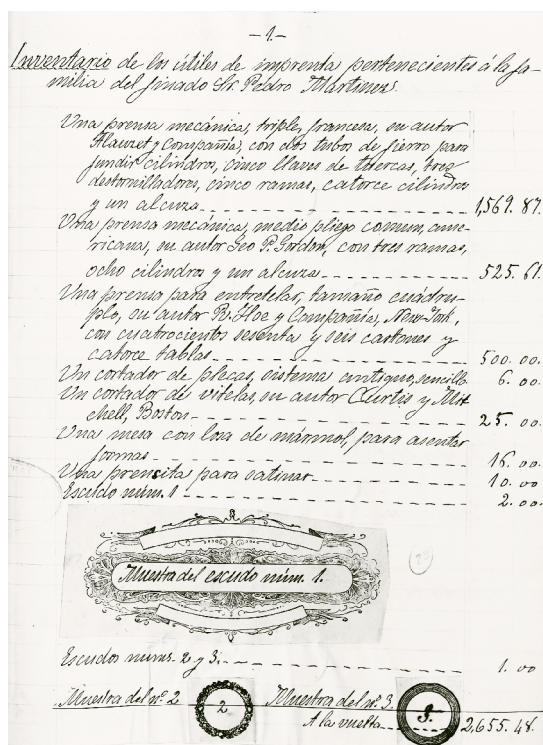 -1-
Inventario de los útiles de imprenta pertenecientes á la fa-
milia del finado Sr. Pedro Martinez.
Una prensa mecánica, triple, francesa, su autor
Alauzet y Compañía, con dos tubos de fierro para
fundir cilindros, cinco llaves de tuercas, tres
destornilladores, cinco ramas, catorce cilindros
y un alcuza 1,569. 87.
Una prensa mecánica, medio pliego comun, ame-
ricana, su autor Geo P. Gordon, con tres ramas,
ocho cilindros y un alcuza 525. 61.
Una prensa para entretelar, tamaño cuádru-
plo, su autor R. Hoe y Compañía, New-York,
con cuatrocientos sesenta y seis cartones y
catorce tablas 500. 00.
Un cortador de plecas, sistema antiguo, sencillo 6. 00.
Un cortador de vitelas, su autor Curtis y Mit-
chell, Boston 25. 00.
Una mesa con losa de mármol, para asentar
formas 16. 00.
Una prensita para satinar 10. 00
Escudo núm. 1 2. 00.
Muestra del escudo núm. 1.
Escudos nums. 2 y 3. 1. 00
Muestra del nº. 2 2 Muestra del nº. 3. 3.
A la vuelta 2,655. 48.